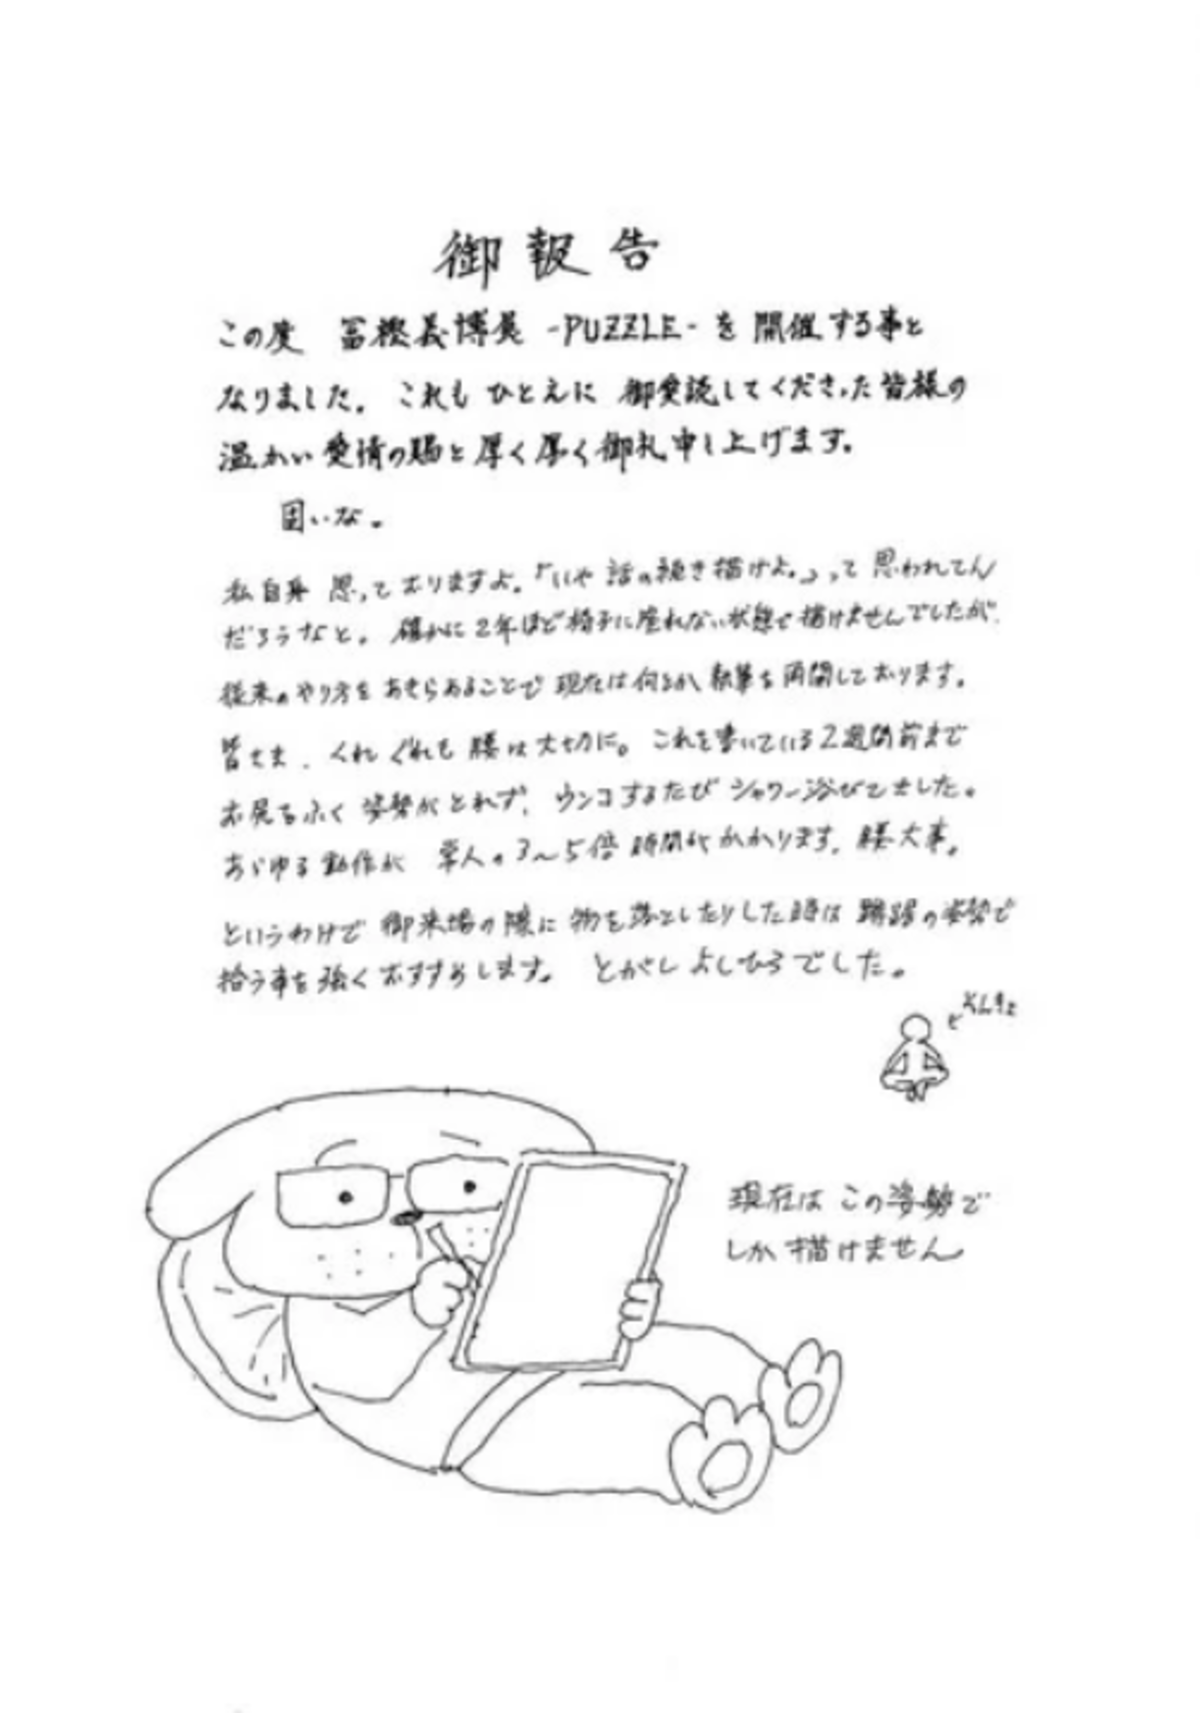 御報告
この度 冨樫義博展 -PUZZLE- を 開催する事と
なりました。これも ひとえに 御愛読してくださった皆様の
温かい愛情の賜と厚く厚く御礼申し上げます。
固いな。
私自身 思っておりますよ。「いや 話の続き描けよ。」って 思われてん
だろうなと。確かに2年ほど椅子に座れない状態で描けませんでしたが、
従来のやり方をあきらめることで 現在は何とか執筆を再開しております。
皆さま、くれぐれも 腰は大切に。これを書いている2週間前まで
お尻をふく 姿勢がとれず、ウンコするたび シャワー浴びてました。
あらゆる動作が 常人の3〜5倍 時間がかかります。腰大事。
というわけで 御来場の際に 物を落としたりした時は 蹲踞の姿勢で
拾う事を強くおすすめします。 とがし よしひろ でした。
そんきょ
現在は この姿勢で
しか 描けません